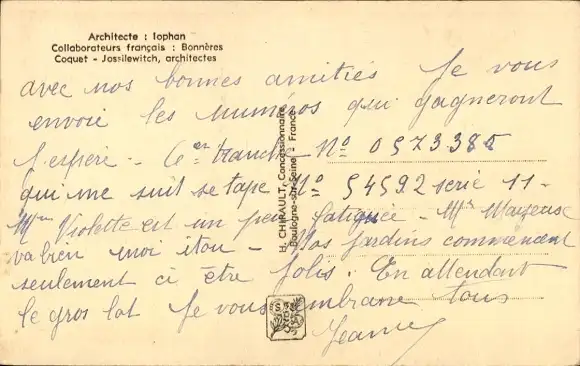 Architecte : Iophan
Collaborateurs français : Bonnères
Coquet - Jossilewitch, architectes
avec nos bonnes amitiés Je vous
envoie les numéros qui gagneront
J'espère - 6e tranche No 0573385
qui me suit se tape No 54592 serie 11 -
Mme Violette est un peu fatiguée -
va bien moi itou - Nos jardins commencent
seulement ci être jolis. En attendant
le gros lot Je vous embrasse tous
Jeanne
H. CHIRAULT, Concessionnaire
Boulogne-sur-Seine - France